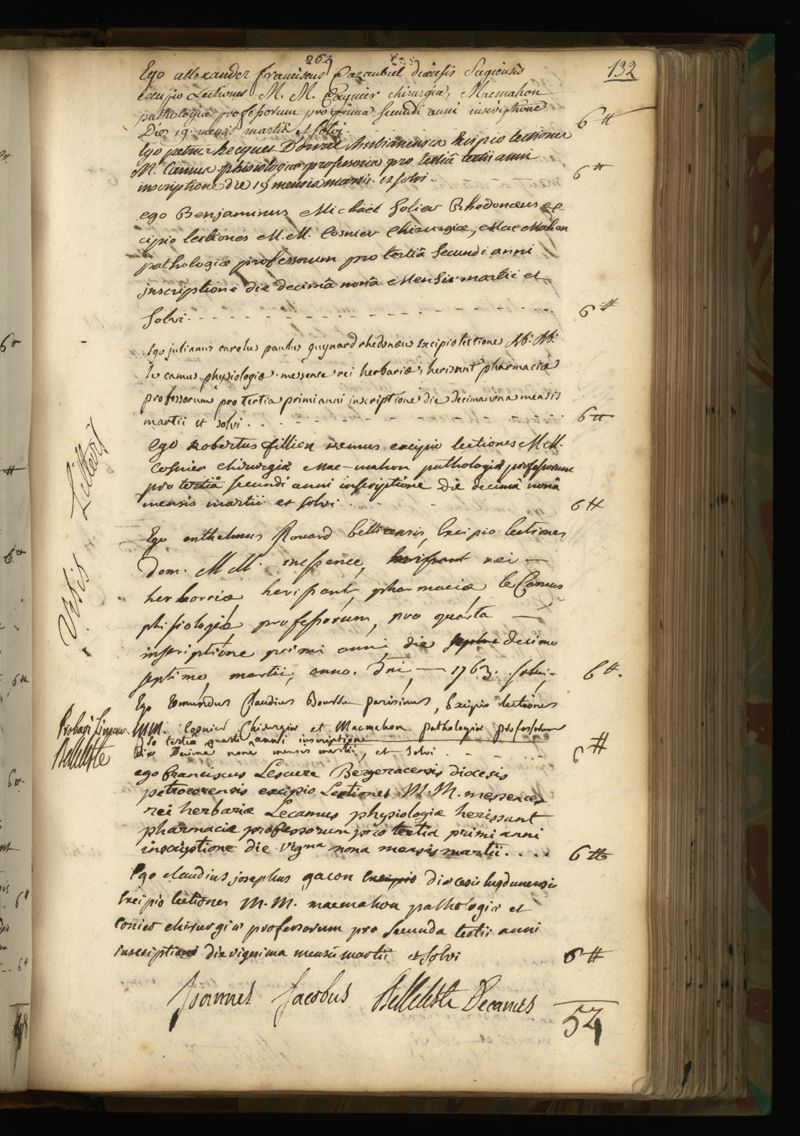 264
132
Ego allexander franciscus diocesis Sagiensis
excipio Lectiones M. M. chirurgiæ, Macmahon
pathologiæ professorum pro prima secundi anni inscriptione
Die 19 mensis martii et solvi. 6 ₶
Ego petrus jacques excipio lectiones
M. Camus phisiologiæ professoris pro tertiâ tertii anni
inscriptione die 19 mensis martii. et solvi. 6 ₶
ego Benjaminus Michael Solier Rhedonæus ex-
cipio lectiones M.M. Cosnier Chirurgiæ, MacMahon
pathologiæ professorum pro tertiâ secundi anni
inscriptione die decimâ nonâ Mensis martii et
solvi. 6 ₶
Ego julianus carolus paulus guynard rhedonæus excipio lectiones M. M.
le camus physiologiæ, messence rei herbariæ, herissant pharmaciæ
professorum pro tertia primi anni inscriptione die decimanona mensis
martii et solvi. 6 ₶
ego Robertus fillion excipio lectiones M.M.
Cosnier chirurgiæ Mac-mahon pathologiæ professorum
pro tertiâ secundi anni inscriptione die decimâ nonâ
mensis martii et solvi. 6 ₶
Ego anthelmus Rouard bellicensis, Excipio lectiones
dom. M M. messence, herissant rei
herborriæ herissant, pharmaciæ le Camus
phisiologiæ professorum, pro quarta
inscriptione primi anni, die decimo
septimo, martii, anno. Dni, 1763. solvi. 6 ₶.
Ego Edmundus Claudius Bourru parisinus, Excipio lectiones
MM. Cosnier Chirurgiæ et Macmahon pathologiæ professorum
pro tertiâ quarti anni inscriptione
die Decimâ nonâ mensis martii, et solvi. 6 ₶
Belleteste
ego franciscus Lescure Bergeracensis diocesis
petrocorensis excipio Lectiones M. M. messence
rei herbariæ Lecamus physiologiæ herissant
pharmaciæ professorum pro tertia primi anni
inscriptione die vigma nona mensis martii. 6 ₶
Ego claudius josephus gacon excipio diocesis lugdunensis
Excipio lectiones M. M. macmahon pathologiæ et
Conier chirurgiæ professorum pro secunda tertii anni
inscriptione die vigesima mensis martii et solvi 6 ₶
Joannes Jacobus Belleteste Decanus
54